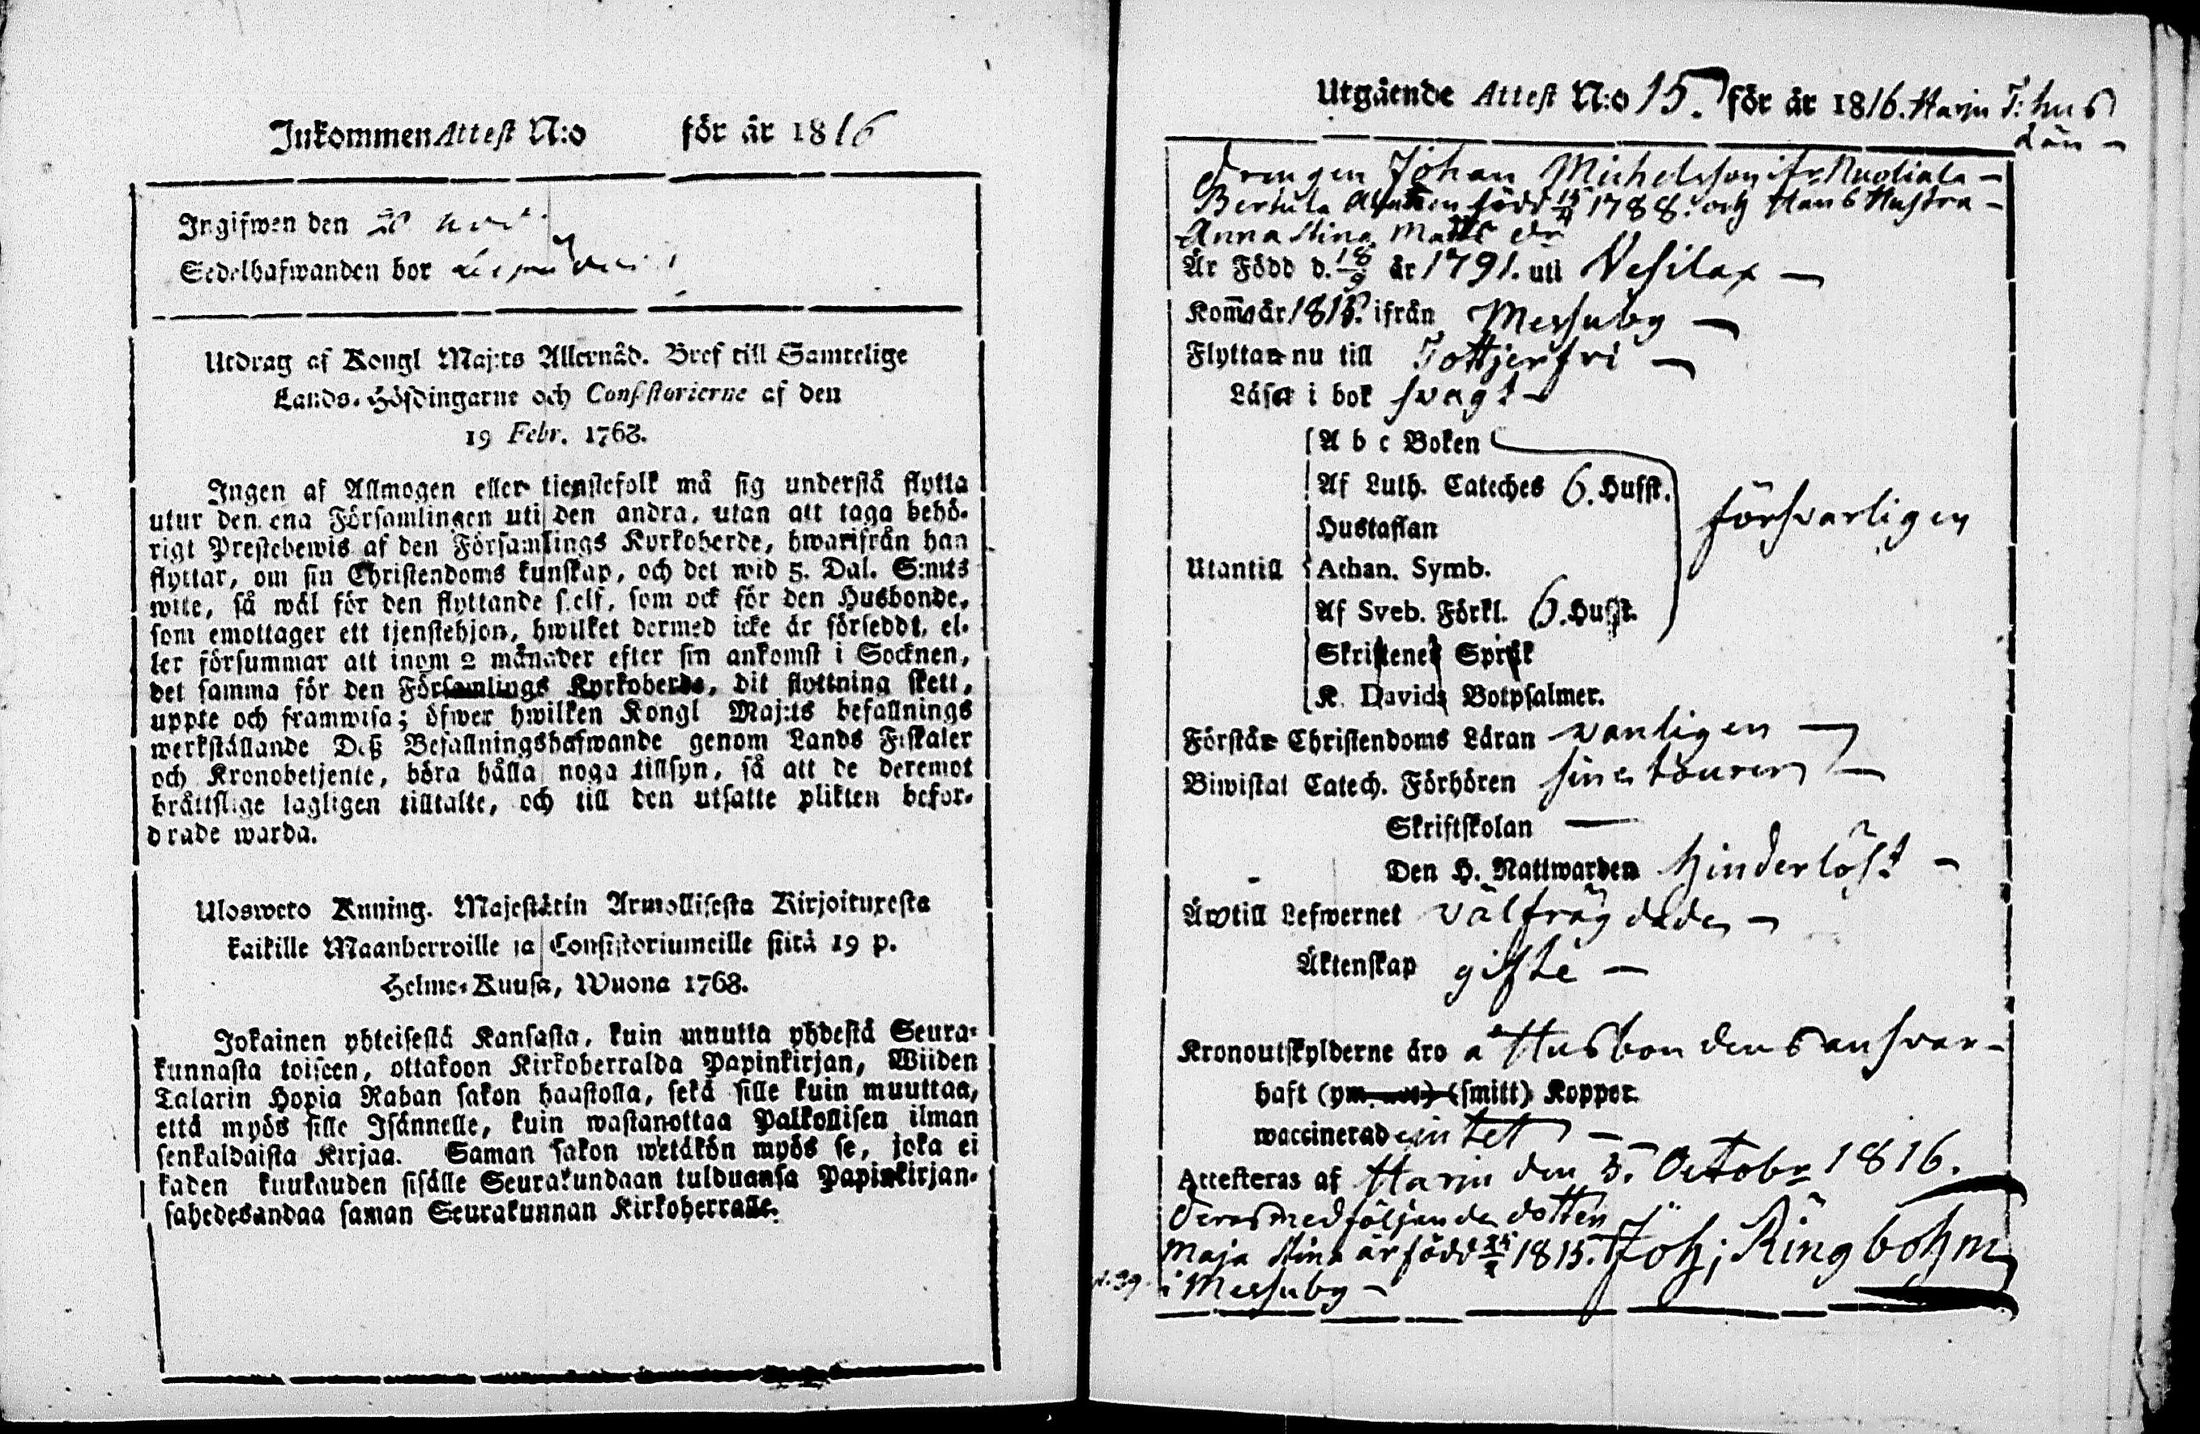 Inkommen Attest N:o för år 1816
Ingifwen den
Sedelhafwanden bor
Utdrag af Kongl Maj:ts Allernåd. Bref till Samtelige
Lands-Höfdingarne och Consistorierne af den
19 Febr. 1768.
Ingen af Allmogen eller tienstefolk må sig understå flytta
utur den ena Församlingen uti den andra, utan att taga behö-
rigt Prestebewis af den Församlings Kyrkoherde, hwarifrån han
flyttar, om sin Christendoms kunskap, och det wid 5. Dal. S:mts
wite, så wäl för den flyttande self, som ock för den Husbonde,
som emottager ett tjenstehjon, hwilket dermed icke är förseddt, el-
ler försummar att inom 2 månader efter sin ankomst i Socknen,
det samma för den Församlings Kyrkoherde, dit flyttning skett,
uppte och framwisa; öfwer hwilken Kongl Maj:ts befallnings
werkställande Deß Befallningshafwande genom Lands Fiskaler
och Kronobetjente, böra hålla noga tillsyn, så att de deremot
bråttslige lagligen tilltalte, och till den utsatte plikten befor-
drade warda.
Ulosweto Kuning. Majestätin Armollisesta Kirjoituxesta
kaikille Maanherroille ja Consistoriumeille siitä 19 p.
Helme-Kuusa, Wuona 1768.
Jokainen yhteisestä Kansasta, kuin muutta yhdestä Seura-
kunnasta toiseen, ottakoon Kirkoherralda Papinkirjan, Wiiden
Talarin Hopia Rahan sakon haastolla, sekä sille kuin muuttaa,
että myös sille Isännelle, kuin wastanottaa Palkollisen ilman
senkaldaista Kirjaa. Saman sakon wetäkön myös se, joka ei
kaden kuukauden sisälle Seurakundaan tulduansa Papinkirjan-
sahedesandaa saman Seurakunnan Kirkoherralle.
Utgående Attest N:o 15. för år 1816. Harju
Drengen Johan Michelsson ifr.
Bertula född 15/4 1788. och Hans Hustru
Anna Stina Matts dr
Är Född d. 18/9 år 1791. uti Vesilax
Kom̅o år 1815. ifrån Messuby
Flyttar nu till Tottjerfvi
Läser i bok svagt
A b c Boken
Af Luth. Cateches 6. Hufst.
Hustaflan
försvarligen
Utantill Athan. Symb.
Af Sveb. Förkl. 6. Hufst.
Skriftenes Språk
K. Davids Botpsalmer.
Förstår Christendoms Läran vanligen
Biwistat Catech. Förhören sine tourer
Skriftskolan
Den H. Nattwarden hinderlöst
Äro till Lefwernet välfrägdade
Äktenskap gifte
Kronoutskylderne äro å Husbondens ansvar
haft (ym (smitt) Koppor.
waccinerad intet
Attesteras af Harju den 5. Octobr 1816.
deras medföljande dotten
Maja Stina är född 1815. Joh: Ringbohm
i Messuby